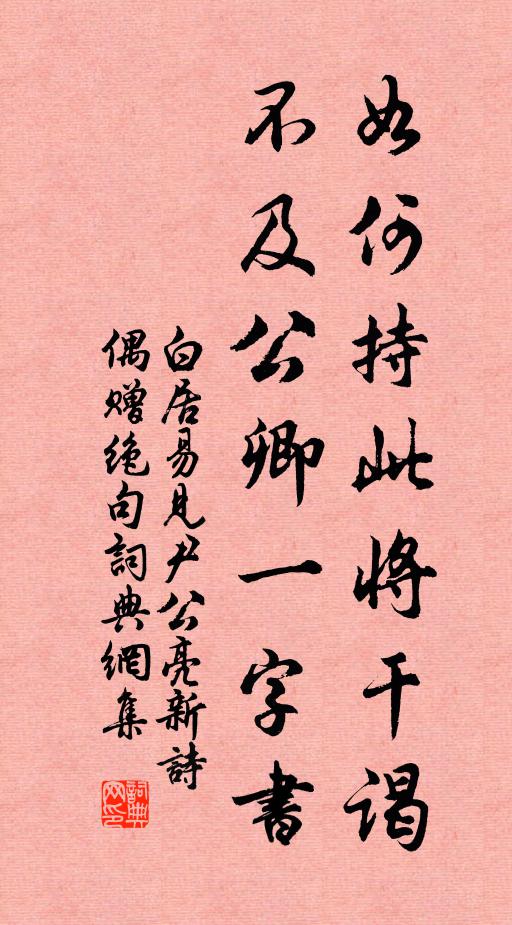 如何持此將干謁
不及公卿一字書
白居易見尹公亮新詩
偶贈絶句詞典網集
詞典网印